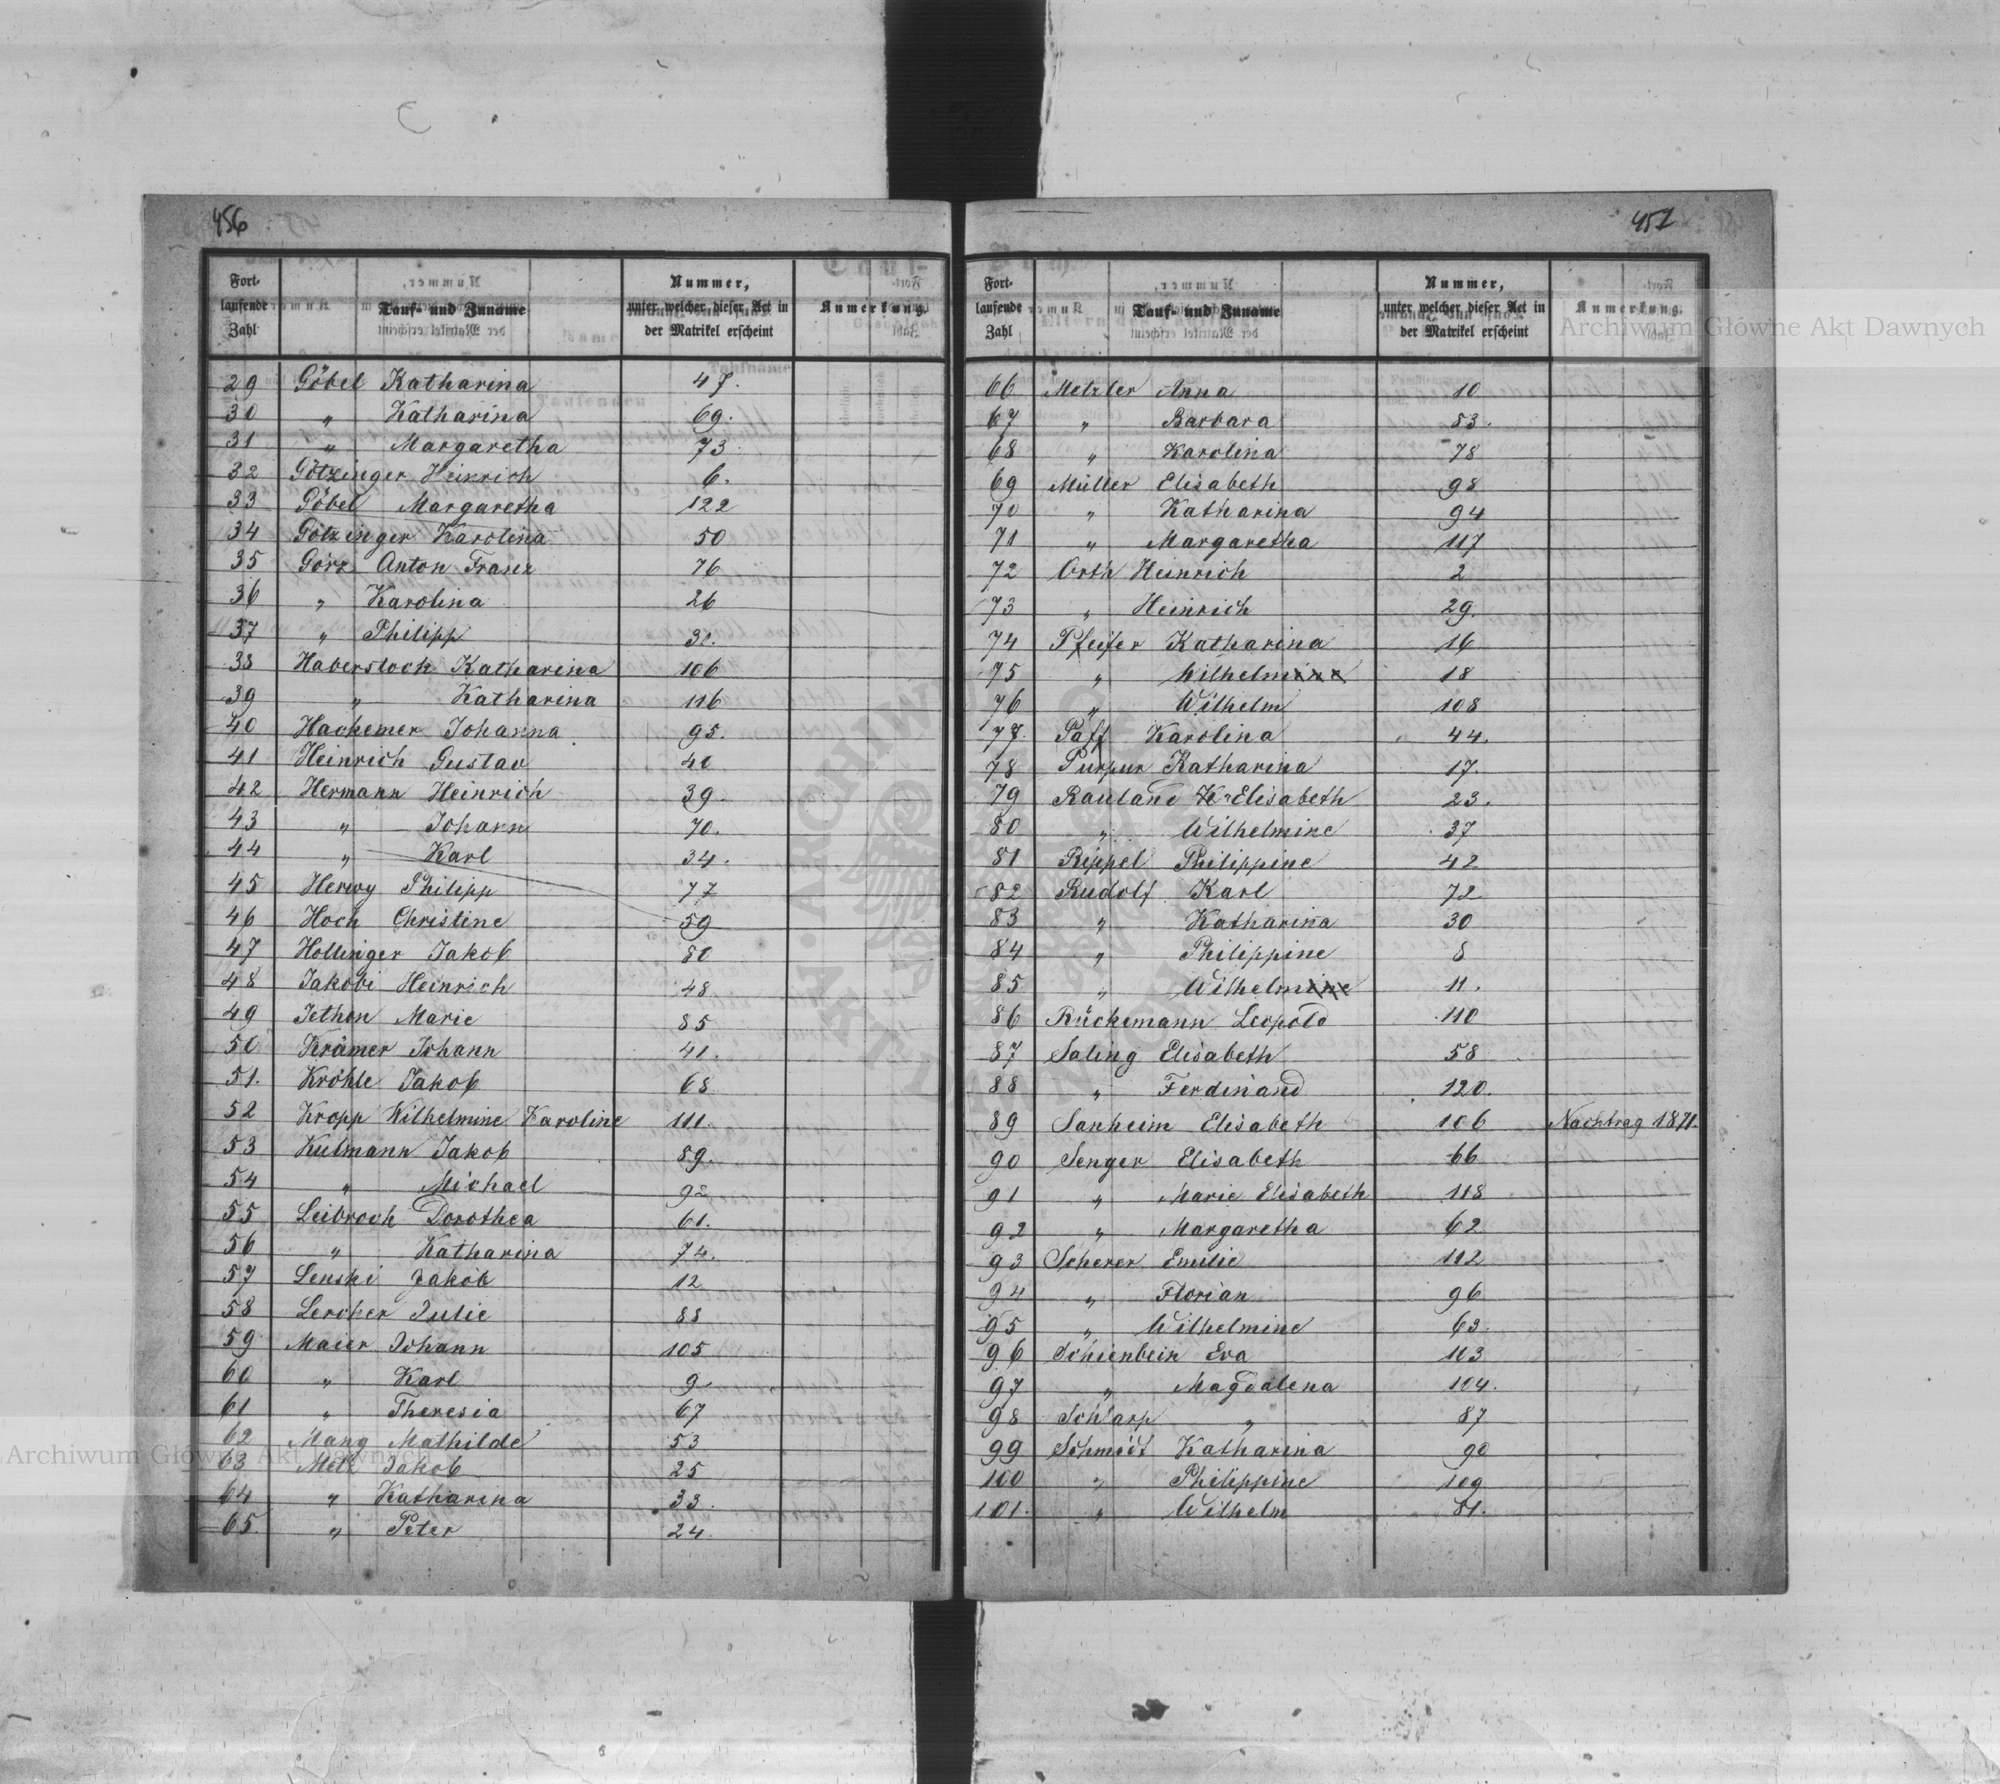 456
Fort-
laufende
Zahl
Tauf- und Zuname
Nummer,
unter welcher dieser Act in
der Matrikel erscheint
Anmerkung.
29 Göbel Katharina 47.
30 „ Katharina 69.
31 „ Margaretha 73
32 Götzinger Heinrich 6.
33 Göbel Margaretha 122
34 Götzinger Karolina 50
35 Görz Anton Franz 76
36 „ Karolina 26
37 „ Philipp 31.
38 Haberstock Katharina 106
39 „ Katharina 116
40 Hackemer Johanna 95.
41 Heinrich Gustav 40
42 Hermann Heinrich 39.
43 „ Johann 70.
44 „ Karl 34.
45 Herwy Philipp 77
46 Hoch Christine 59
47 Hollinger Jakob 80
48 Jakobi Heinrich 48
49 Jethon Marie 85
50 Krämer Johann 41.
51. Kröhle Jakob 68
52 Kropp Wilhelmine Karoline 111.
53 Kulmann Jakob 89.
54 „ Michael 92
55 Leibrock Dorothea 61.
56 „ Katharina 74.
57 Lenski Jakob 12
58 Lercher Julie 88
59 Maier Johann 105
60 „ Karl 9
61 „ Theresia 67
62 Mang Mathilde 53
63 Metz Jakob 25
64 „ Katharina 33.
65. „ Peter 24.
457
Fort-
laufende
Zahl
Tauf- und Zuname
Nummer,
unter welcher dieser Act in
der Matrikel erscheint
Anmerkung.
66 Metzler Anna 10
67 „ Barbara 83.
68 „ Karolina 78
69 Müller Elisabeth 98
70 „ Katharina 94
71 „ Margaretha 117
72 Orth Heinrich 2
73 „ Heinrich 29.
74 Pfeifer Katharina 16
75 „ Wilhelmine 18
76 „ Wilhelm 108
77. Paff Karolina 44.
78 Purpur Katharina 17.
79 Rauland K. Elisabeth 23.
80 „ Wilhelmine 37
81 Rippel Philippine 42
82 Rudolf Karl 72
83 „ Katharina 30
84 „ Philippine 8
85 „ Wilhelmine 11.
86 Rückemann Leopold 110
87 Saling Elisabeth 58
88 „ Ferdinand 120.
89 Sanheim Elisabeth 106 Nachtrag 1871.
90 Senger Elisabeth 66
91 „ Marie Elisabeth 118
92 „ Margaretha 62
93 Scherer Emilie 112
94 „ Florian 96
95 „ Wilhelmine 63.
96 Schienbein Eva 113
97 „ Magdalena 104.
98 Scharp „ 87
99 Schmidt Katharina 90
100 „ Philippine 109
101. „ Wilhelm 81.
Archiwum Główne Akt Dawnych
Archiwum Główne Akt Dawnych